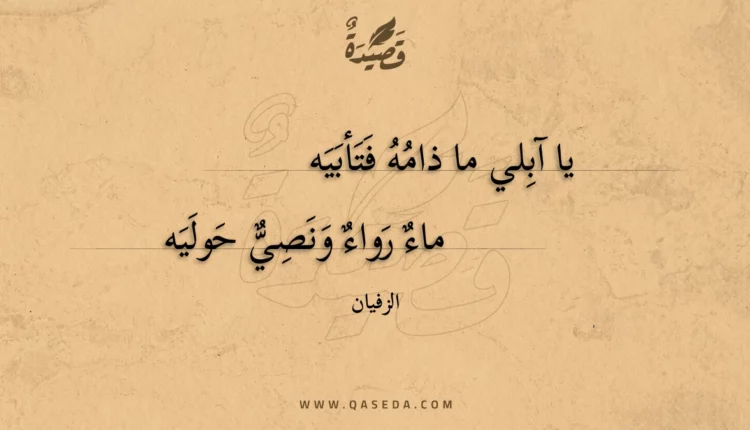 قَصِيْدَةٌ
يا آبِلي ما ذامُهُ فَتَأبَيَه
ماءٌ رَواءٌ وَنَصِيٌّ حَولَيَه
الزفيان
WWW.QASEDA.COM